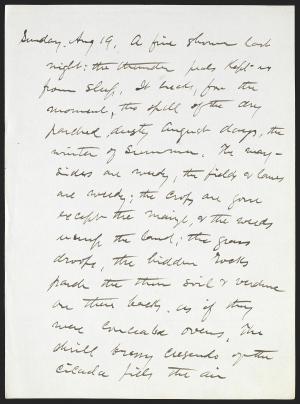 Sunday, Aug 19, A fine shower last
night: the thunder peals kept us
from sleep. It breaks, for the
moment, the spell of the dry
parched dusty August days, the
winter of Summer. The way-
sides are weedy, the fields & lanes
are weedy; the crops are gone
except the maize, & the weeds
usurp the land; the grass
droops, the hidden rocks
parch the thin soil & verdure
on their backs, as if they
were concealed ovens. The
shrill brassy crescendo of the
cicada fills the air